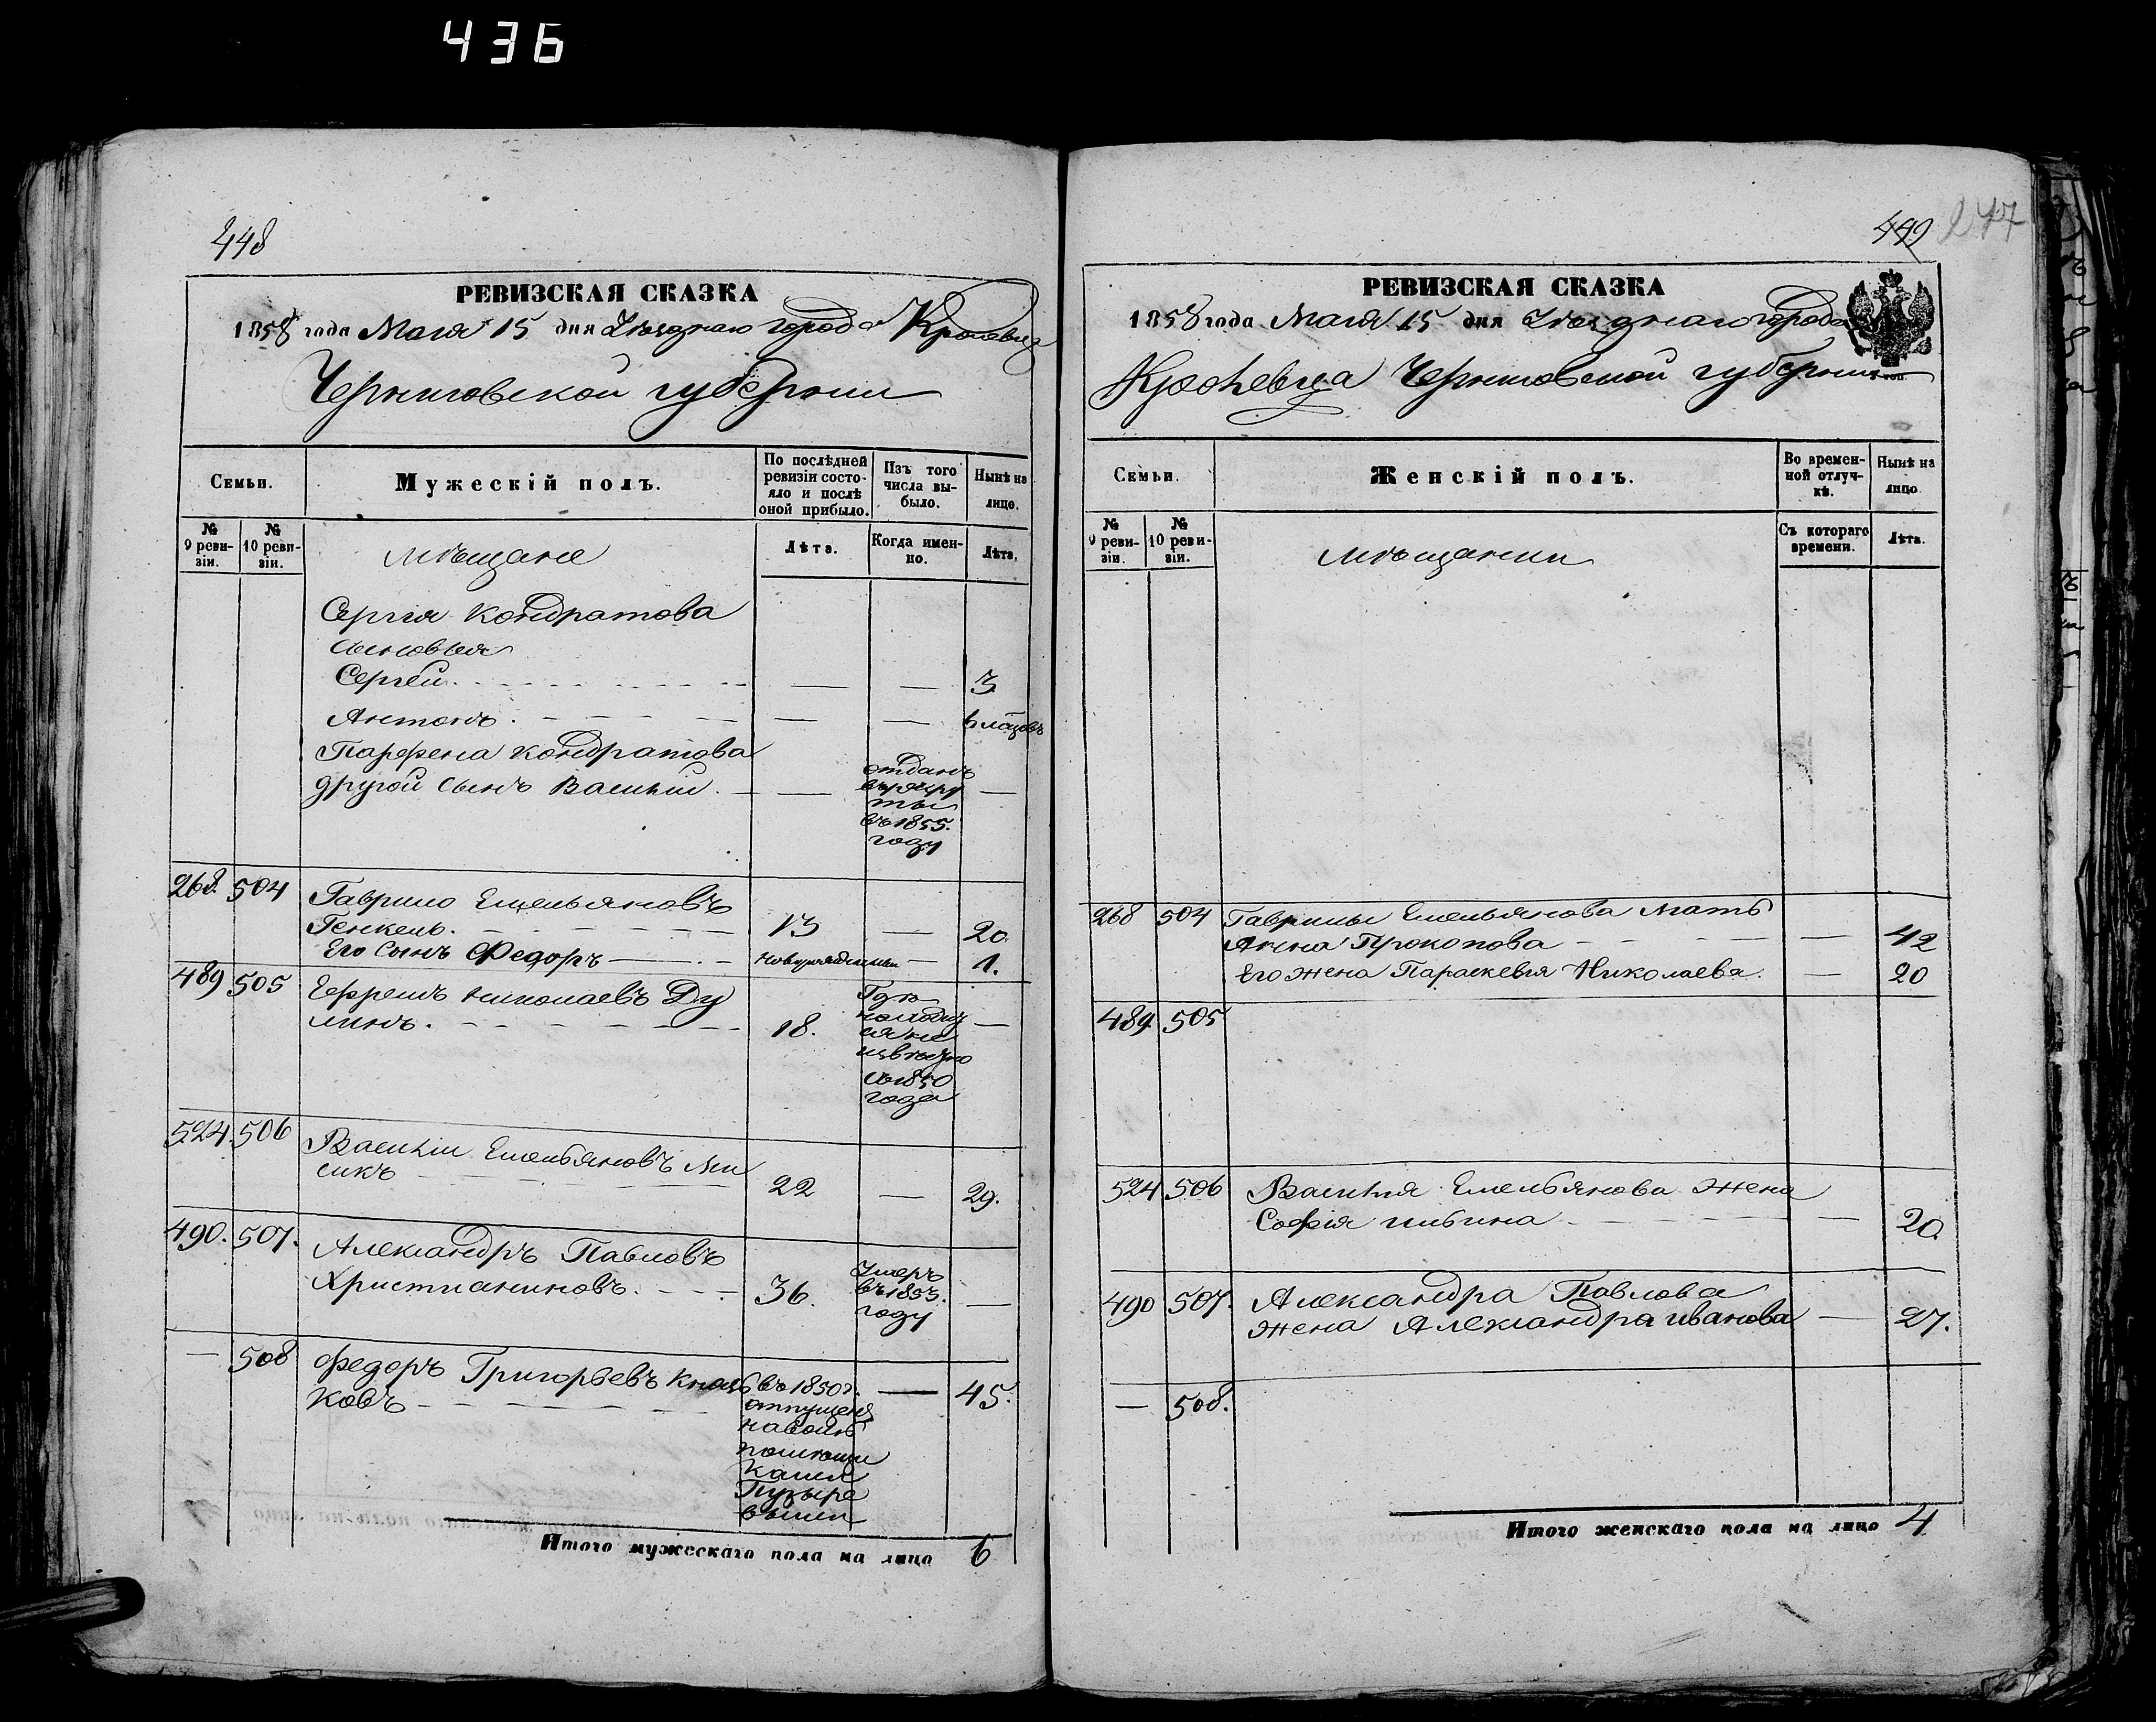 436
448
РЕВИЗСКАЯ СКАЗКА
1858 года Мая 15 дня Уѣзднаго города Кролевца
Черниговской губерніи
Семьи.
Мужескій полъ.
По послѣдней ревизіи состояло и послѣ оной прибыло.
Изъ того числа выбыло.
Нынѣ на лицо.
№ 9 ревизіи.
№ 10 ревизіи.
Мѣщане
Лѣта.
Когда именно.
Лѣта.
Сергія Кондратова
сыновья
Сергѣй. — — 3
Антонъ. — —
Парфена Кондратова
другой сынъ Василій. — отданъ въ рекруты въ 1855. году —
268. 504 Гаврило Емельяновъ
Генкель. 13 — 20
Его сынъ Федоръ — — 1.
489 505 Ефремъ Николаевъ Ду
линъ. 18. Гдѣ находится неизвѣстно съ 1850 года —
524. 506 Василій Емельяновъ Ми
сикъ 22 — 29.
490. 507. Александръ Павловъ
Христианиновъ. 36. Умеръ въ 1853. году —
— 508 Федоръ Григорьевъ
ковъ въ 1850 г. отпущенъ на волю Пузыре — 45.
Итого мужескаго пола на лицо 6
449 247
РЕВИЗСКАЯ СКАЗКА
1858 года Мая 15 дня Уѣзднаго города
Кролевца Черниговской губерніи
Семьи.
Женскій полъ.
Во временной отлучкѣ.
Нынѣ на лицо
№ 9 ревизіи.
№ 10 ревизіи.
Мѣщанки
Съ котораго времени.
Лѣта.
268 504 Гаврилы Емельянова мать
Анна Прокопова — 42
Его жена Параскевія Николаева. — 20
489 505
524 506 Василія Емельянова жена
Софія — 20.
490 507. Александра Павлова
жена Александра Иванова — 27.
— 508.
Итого женскаго пола на лицо 4